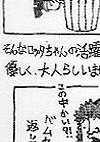 そんなロッタちゃんの活躍
優しく、大人らしいま
このやかい?!
バムセ
返し